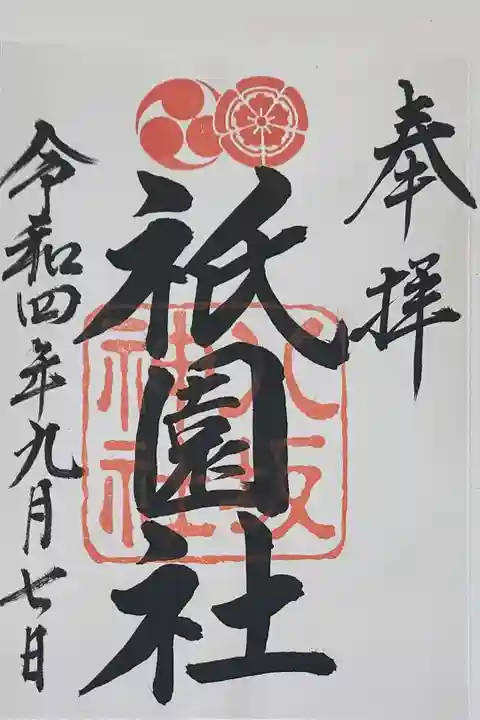 奉拝
祇園社
八坂神社
令和四年九月七日